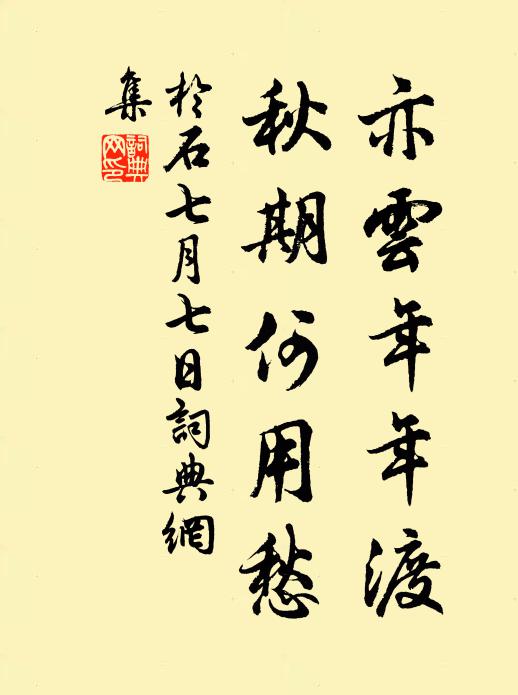 亦雲年年渡
秋期何用愁
於石七月七日詞典網
集
詞典網印